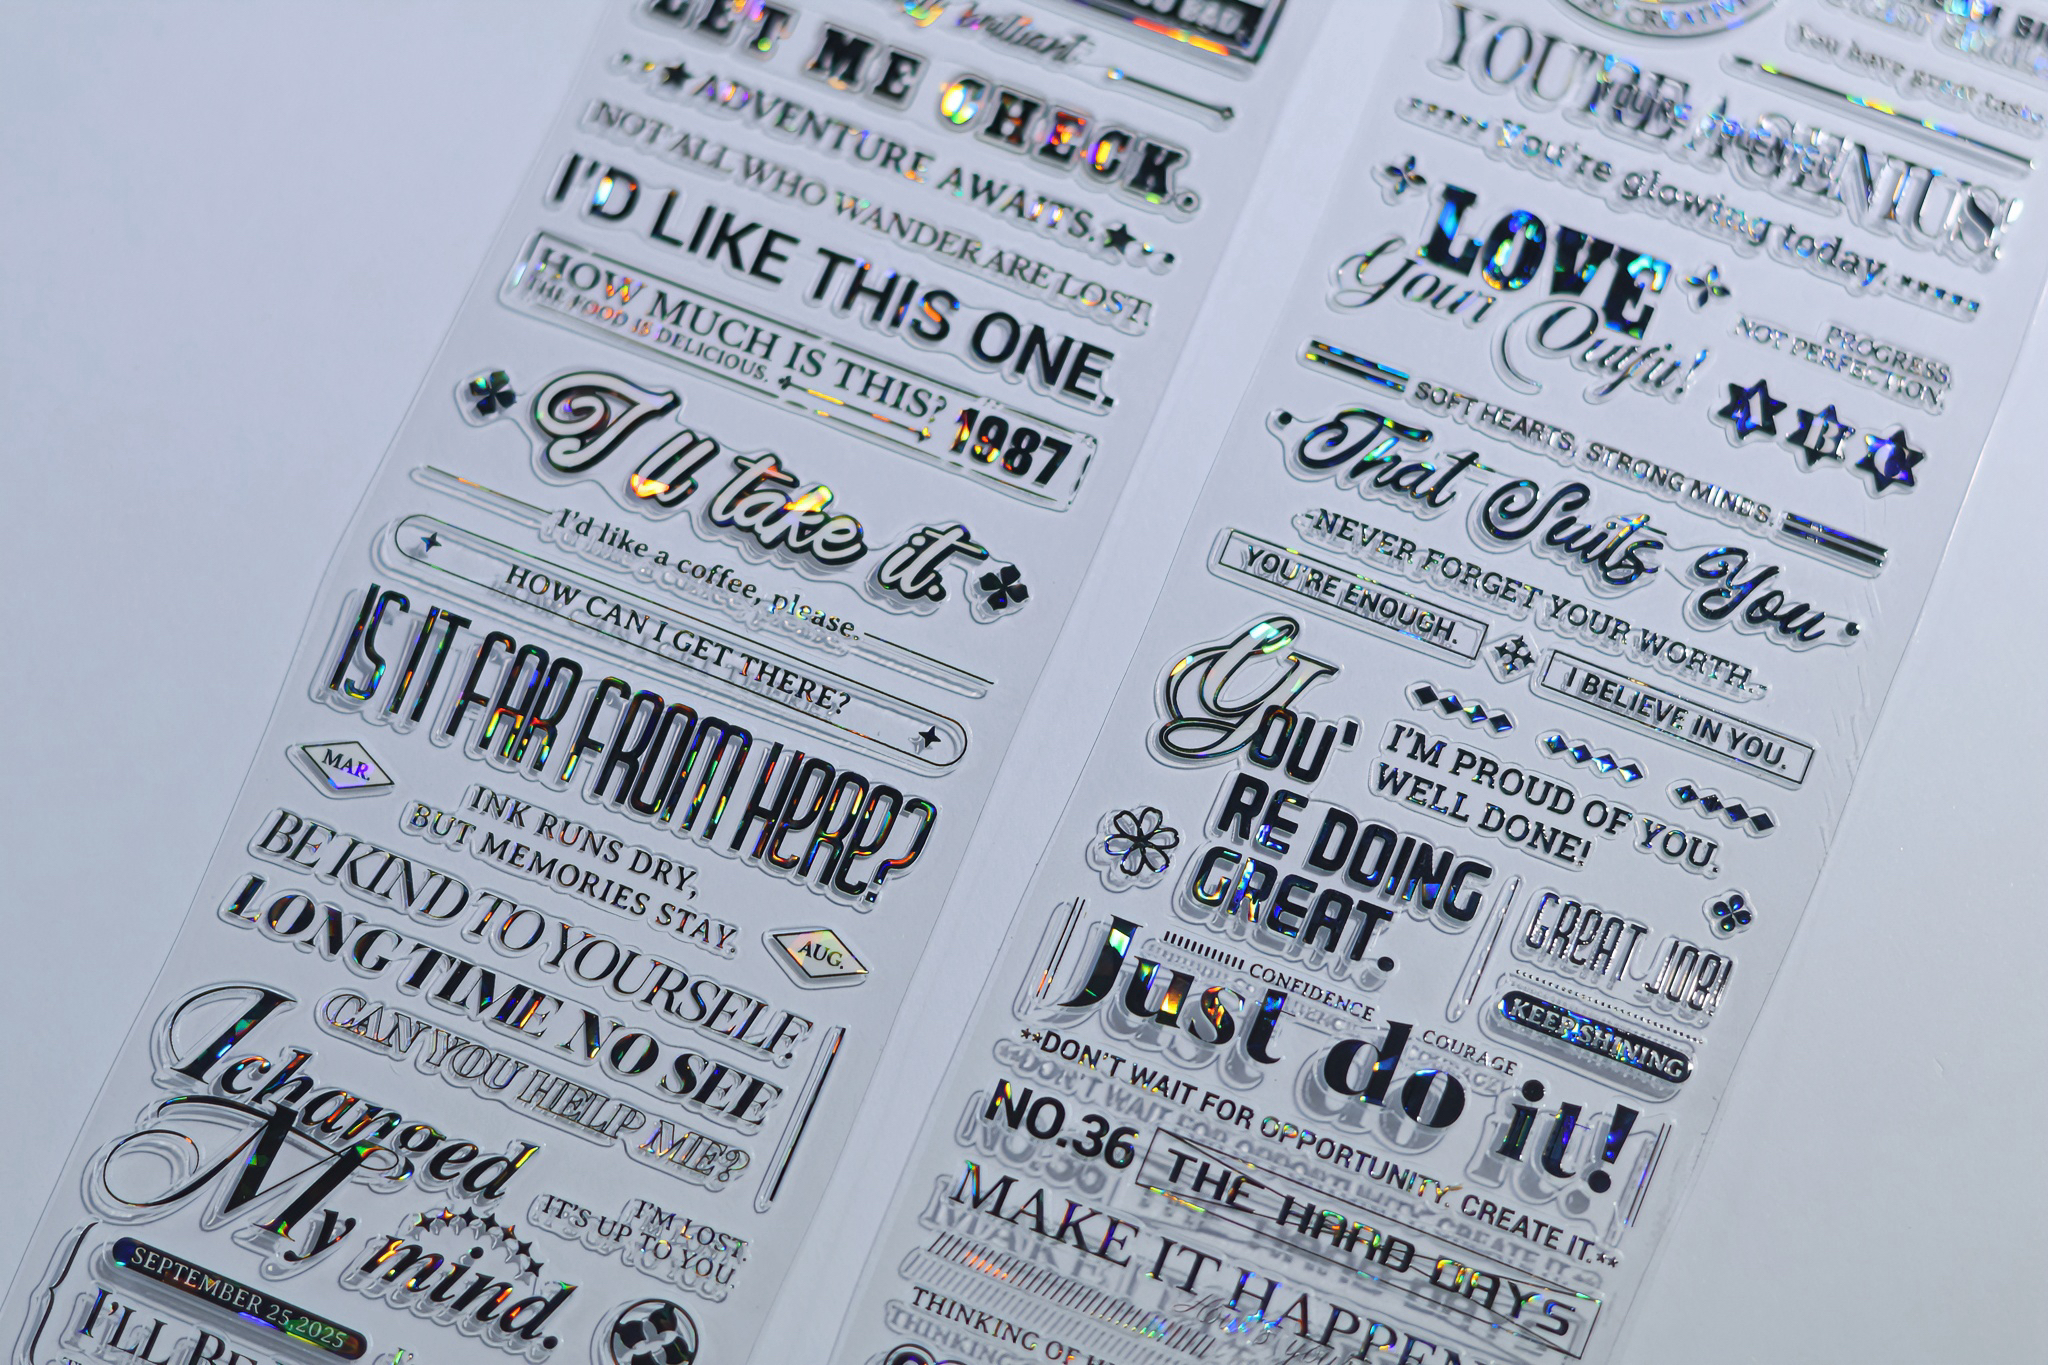 LET ME CHECK.
ADVENTURE AWAITS.
NOT ALL WHO WANDER ARE LOST.
I'D LIKE THIS ONE.
HOW MUCH IS THIS?
THE FOOD IS DELICIOUS.
1987
I'll take it.
I'd like a coffee, please.
HOW CAN I GET THERE?
IS IT FAR FROM HERE?
MAR.
INK RUNS DRY,
BUT MEMORIES STAY.
AUG.
BE KIND TO YOURSELF.
LONG TIME NO SEE
CAN YOU HELP ME?
I changed
My mind.
I'M LOST.
IT'S UP TO YOU.
SEPTEMBER 25,2025
I'LL BE
YOU'RE A GENIUS!
You have great taste
You're glowing today.
LOVE
Your Outfit!
PROGRESS,
NOT PERFECTION.
A B C
SOFT HEARTS, STRONG MINDS.
That Suits You
-NEVER FORGET YOUR WORTH.-
YOU'RE ENOUGH.
I BELIEVE IN YOU.
YOU'
RE DOING
GREAT.
I'M PROUD OF YOU.
WELL DONE!
GREAT JOB!
KEEP SHINING
CONFIDENCE
COURAGE
Just do it!
**DON'T WAIT FOR OPPORTUNITY. CREATE IT.**
NO.36
THE HARD DAYS
MAKE IT HAPPEN
THINKING OF